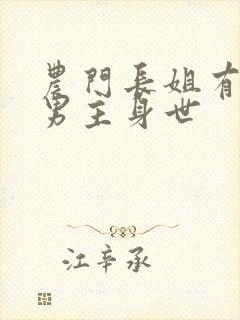 農門長姐有
男主身世
江辛承